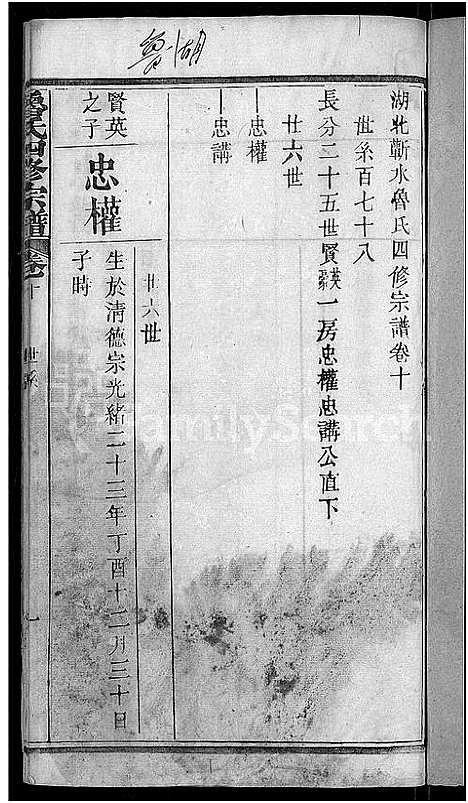 魯湖
湖北蘄水魯氏四修宗譜卷十
世系百七十八
長分二十五世賢英一房忠權忠講公直下
廿六世
忠權
忠講
廿六世
賢英之子
忠權
生於清德宗光緒二十三年丁酉十二月三十日
子時
魯氏四修宗譜
卷十
世系
一
FamilySearch